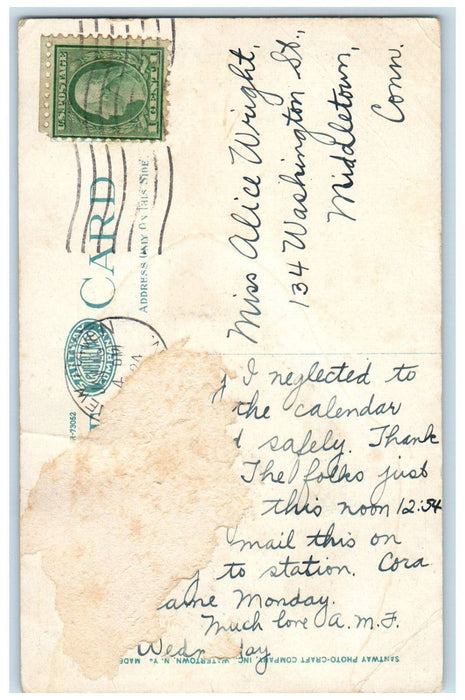 U.S. POSTAGE
1 CENT 1
CARD
ADDRESS ONLY ON THIS SIDE
Miss Alice Wright,
134 Washington St.,
Middletown,
Conn.
I neglected to
the calendar
safely. Thank
The folks just
this noon 12:54
mail this on
to station. Cora
came Monday.
Much love A.M.F.
73052
SANTWAY PHOTO-CRAFT COMPANY, INC., WATERTOWN, N. Y. MADE